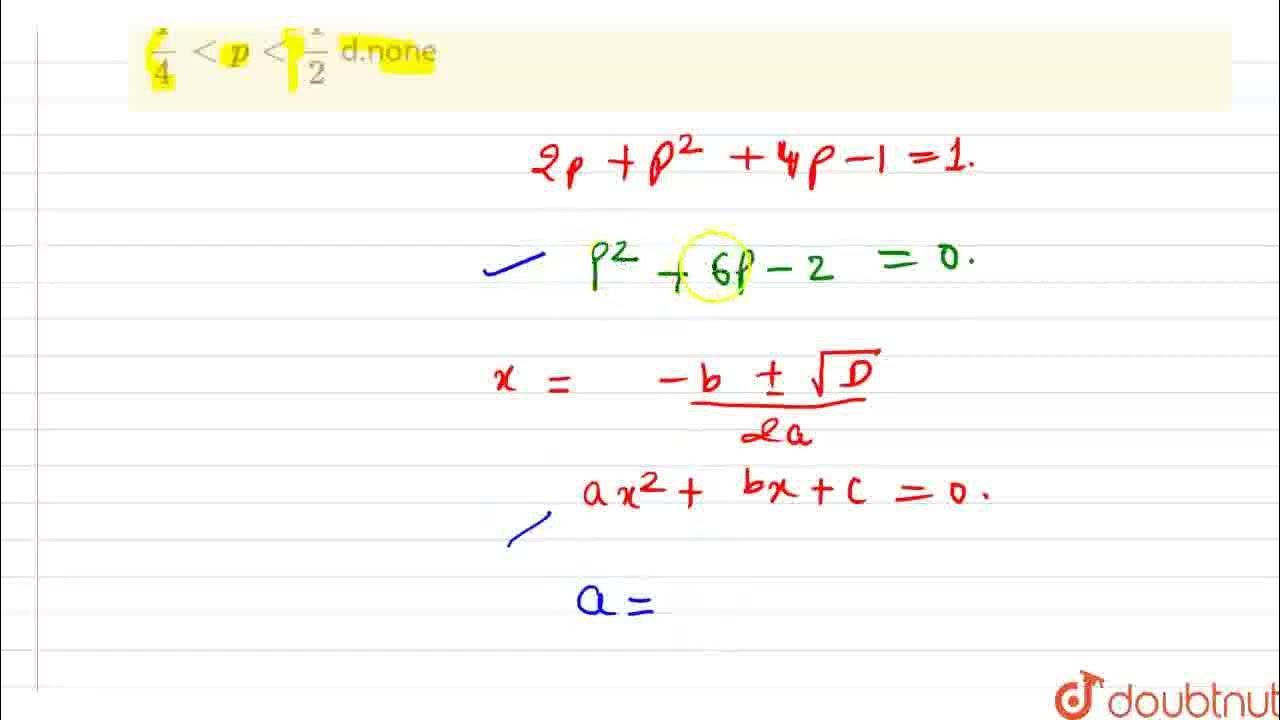 1/4 < p < 1/2 d.none
2p + p² + 4p - 1 = 1.
p² + 6p - 2 = 0.
x = (-b ± √D)/2a
ax² + bx + c = 0.
a =
doubtnut